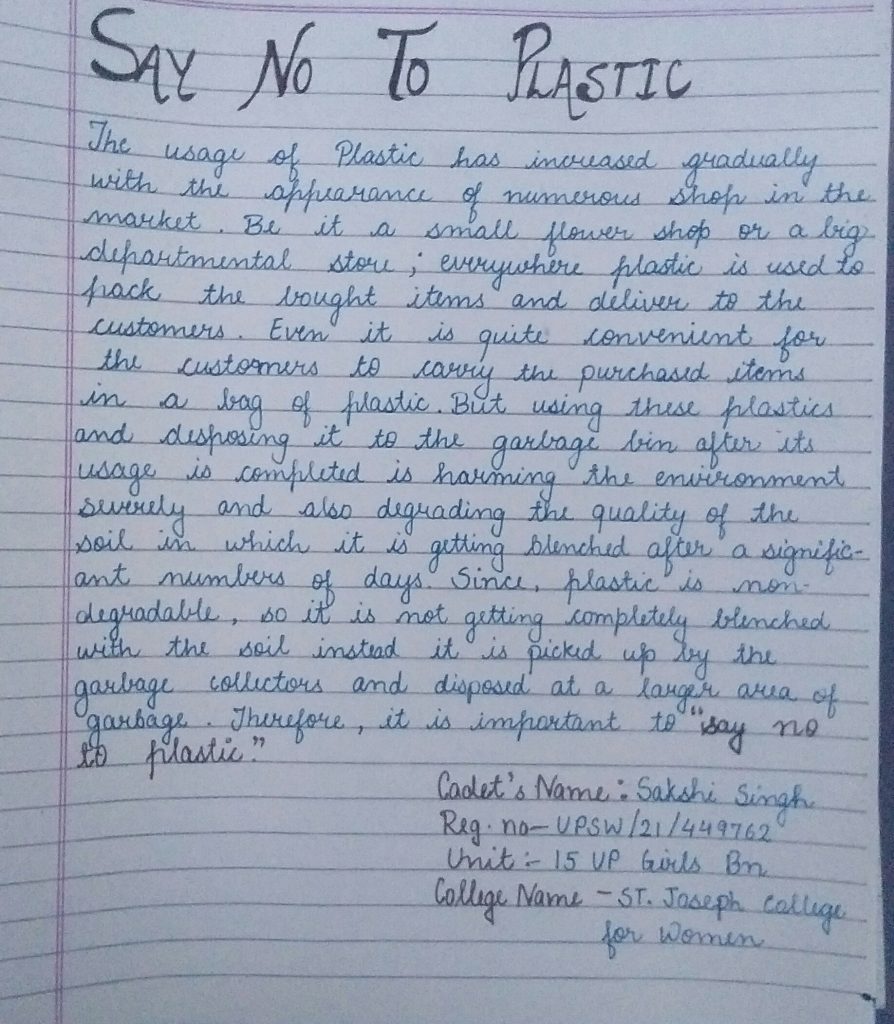 SAY NO TO PLASTIC
The usage of Plastic has increased gradually
with the appearance of numerous shop in the
market. Be it a small flower shop or a big
departmental store; everywhere plastic is used to
pack the bought items and deliver to the
customers. Even it is quite convenient for
the customers to carry the purchased items
in a bag of plastic. But using these plastics
and desposing it to the garbage bin after its
usage is completed is harming the environment
severely and also degrading the quality of the
soil in which it is getting blenched after a signific-
ant numbers of days. Since, plastic is non-
degradable, so it is not getting completely blenched
with the soil instead it is picked up by the
garbage collectors and disposed at a larger area of
garbage. Therefore, it is important to "say no
to plastic."
Cadet's Name: Sakshi Singh
Reg. no- UPSW/21/449762
Unit:- 15 UP Girls Bn
College Name - ST. Joseph College
for Women